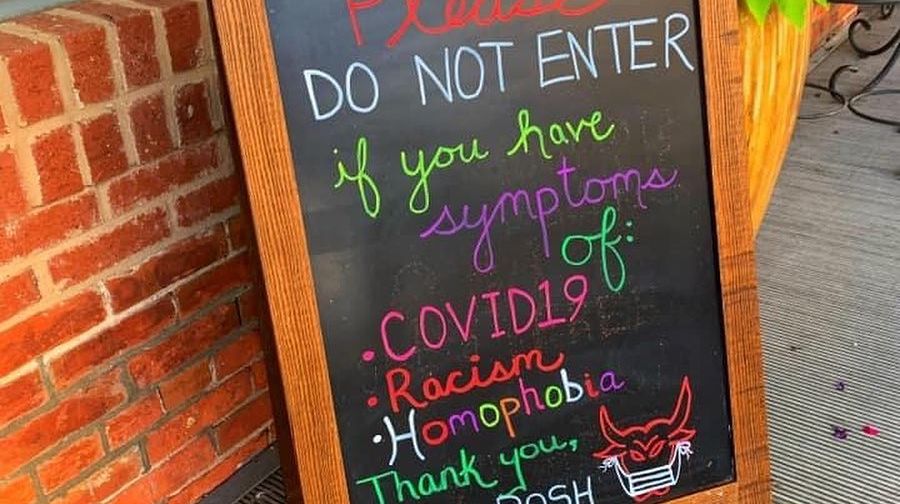 Please
DO NOT ENTER
if you have
symptoms
of:
• COVID19
• Racism
• Homophobia
Thank you,
POSH